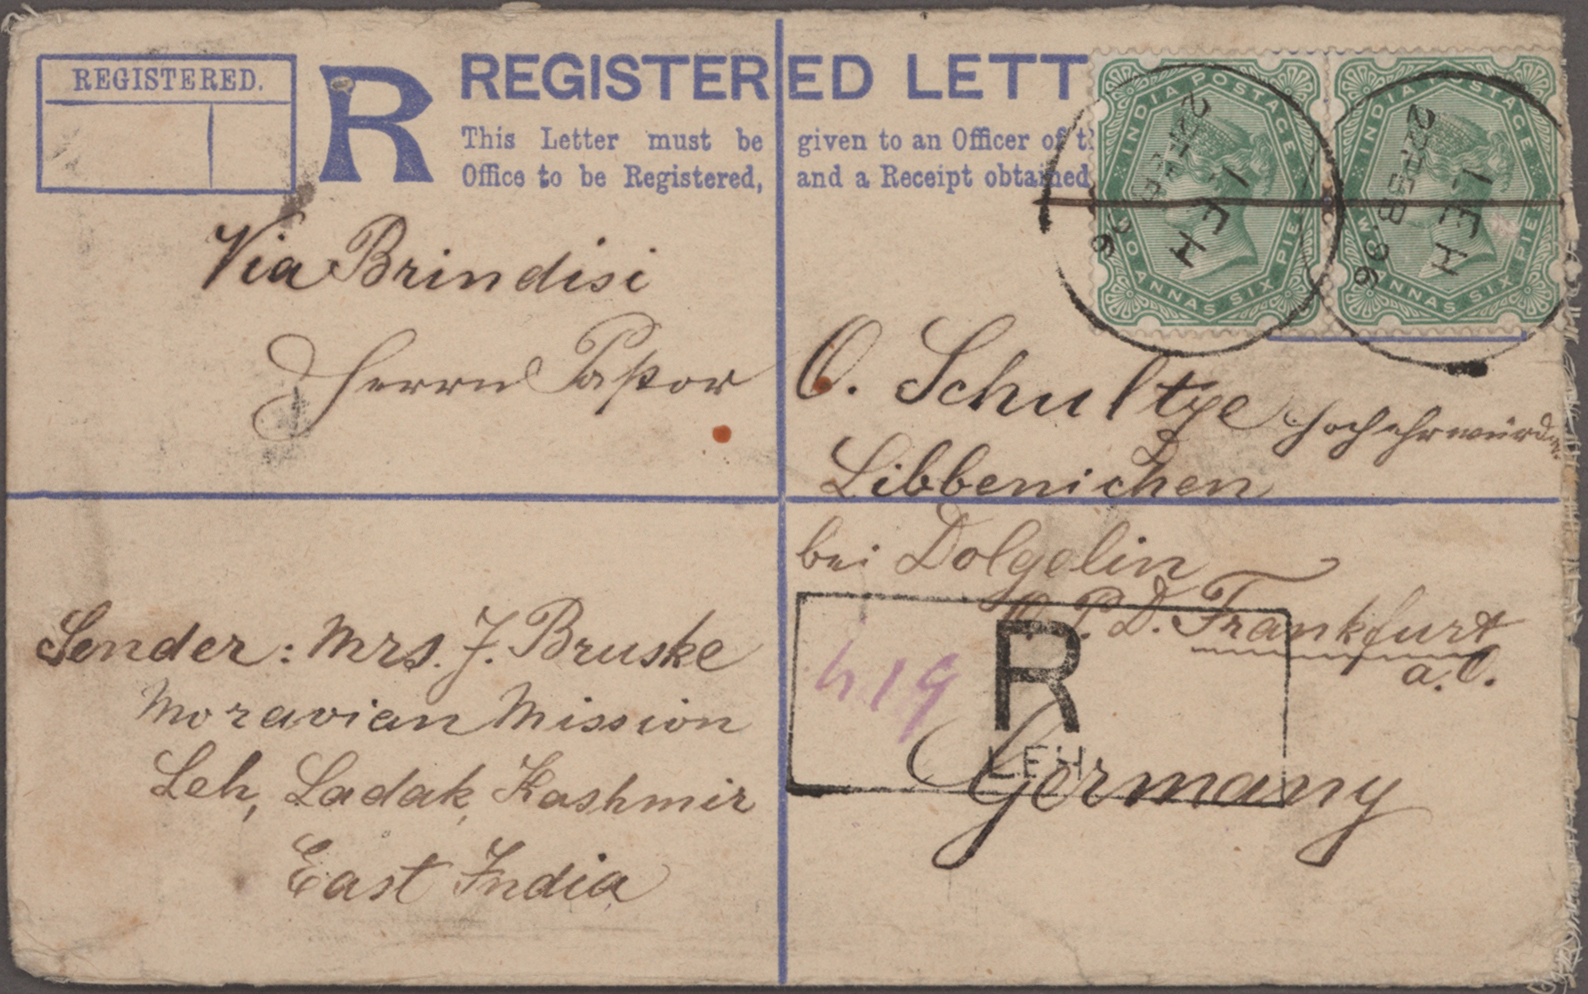 REGISTERED.
R
REGISTERED LETT
This Letter must be given to an Officer of th
Office to be Registered, and a Receipt obtained
INDIA POSTAGE
TWO ANNAS SIX PIES
INDIA POSTAGE
TWO ANNAS SIX PIE
LEH
22 FEB 96
LEH
22 FEB. 96
Via Brindisi
Herrn Pastor O. Schultze Hochehrwürden
Libbenichen
bei Dolgelin
O. P. D. Frankfurt
a. O.
Germany
R
LEH.
Sender: Mrs. J. Bruske
Moravian Mission
Leh, Ladak, Kashmir
East India